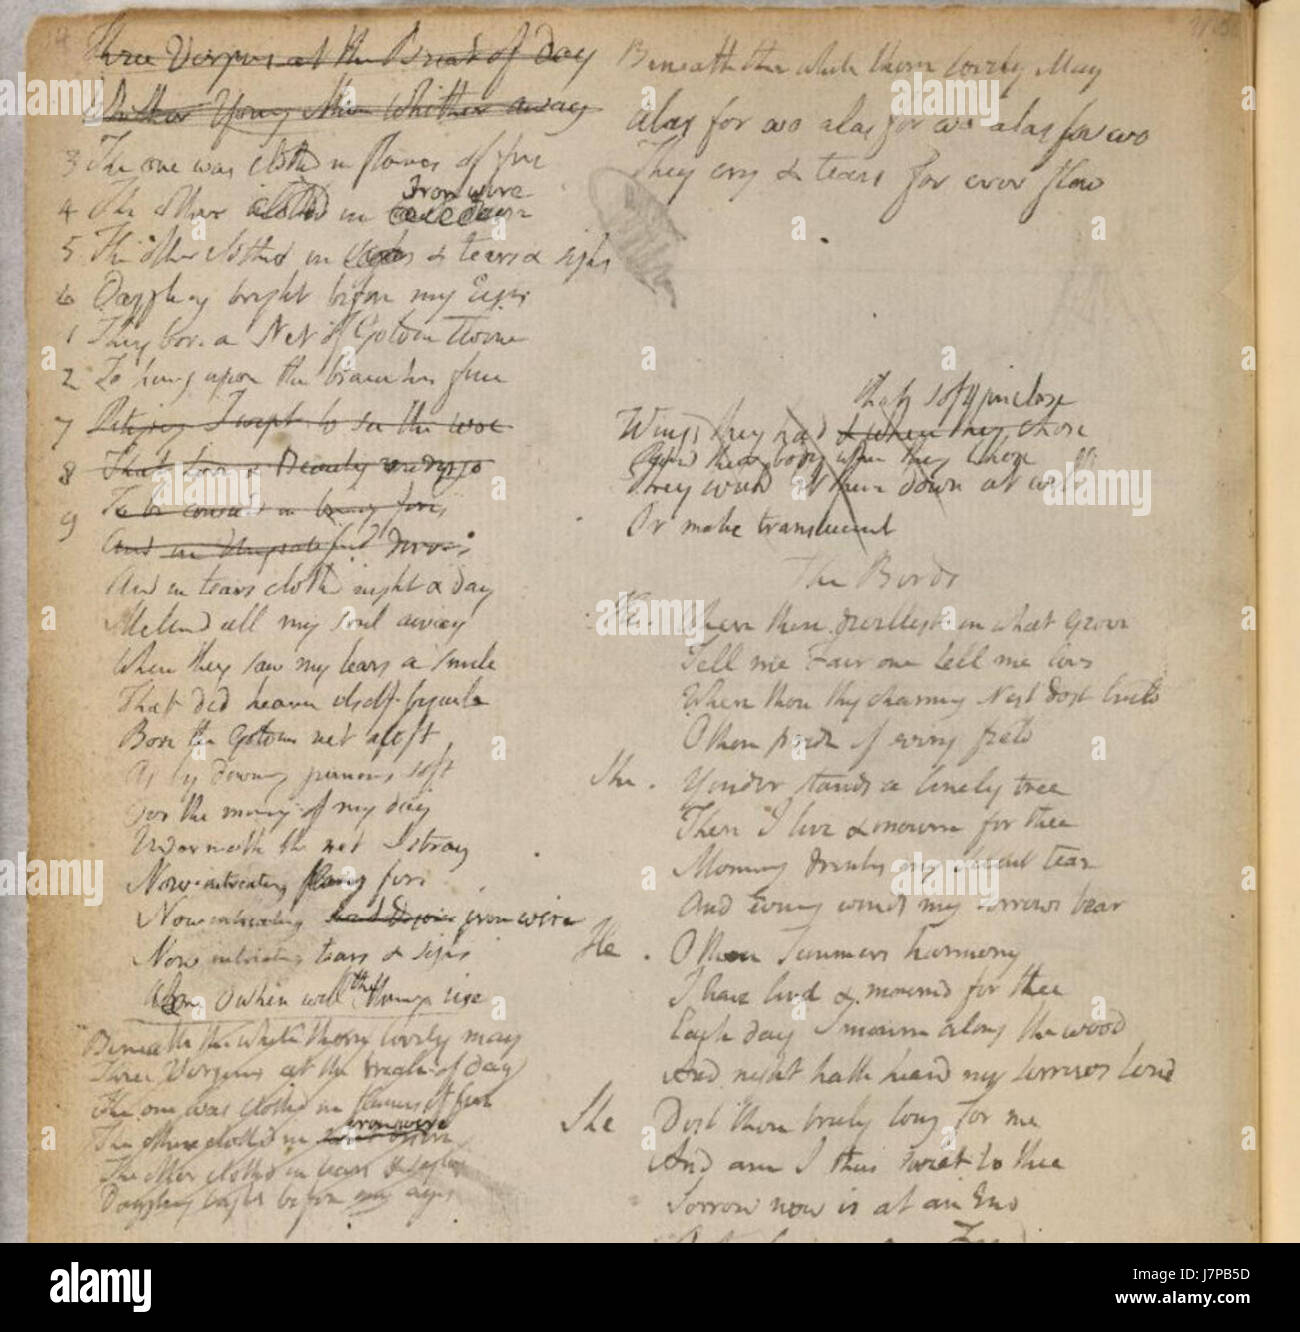 14
Three Virgins at the Break of day
Whither Young Man Whither away
3 The one was clothd in flames of fire
Iron wire
4 The other clothd in
5 The other clothd in & tears & sighs
6 Dazzling bright before my Eyes
1 They bore a Net of Golden Twine
2 To hang upon the branches fine
7 Pitying I wept to see the woe
8 That Love & Beauty undergo
9 To be consumd in burning fires
And in Ungratified desires
And in tears clothd night & day
Melted all my soul away
When they saw my tears a smile
That did heaven itself beguile
Bore the Golden net aloft
As by downy pinions soft
Oer the morning of my day
Underneath the net I stray
Now intreating flaming fire
Now intreating iron wire
Now intreating tears & sighs
O when will the morning rise
Beneath the white thorn lovely may
Three Virgins at the break of day
The one was clothd in flames of fire
iron wire
The other clothd in
The other clothd in tears & sighs
Dazzling bright before my eyes
Beneath the white thorn lovely May
Alas for wo alas for wo alas for wo
They cry & tears for ever flow
that soft inclose
Wings they had & when they chose
Round the body when they chose
They would let them down at will
Or make translucent
The Birds
He. Where thou dwellest in what Grove
Tell me Fair one tell me love
Where thou thy charming Nest dost build
O thou pride of every field
She. Yonder stands a lonely tree
There I live & mourn for thee
Morning drinks my silent tear
And Evening winds my sorrows bear
He. O thou Summers harmony
I have livd & mournd for thee
Each day I mourn along the wood
And night hath heard my sorrows loud
She Dost thou truly long for me
And am I thus sweet to thee
Sorrow now is at an End
alamy
alamy stock photo
Image ID: J7PB5D
www.alamy.com